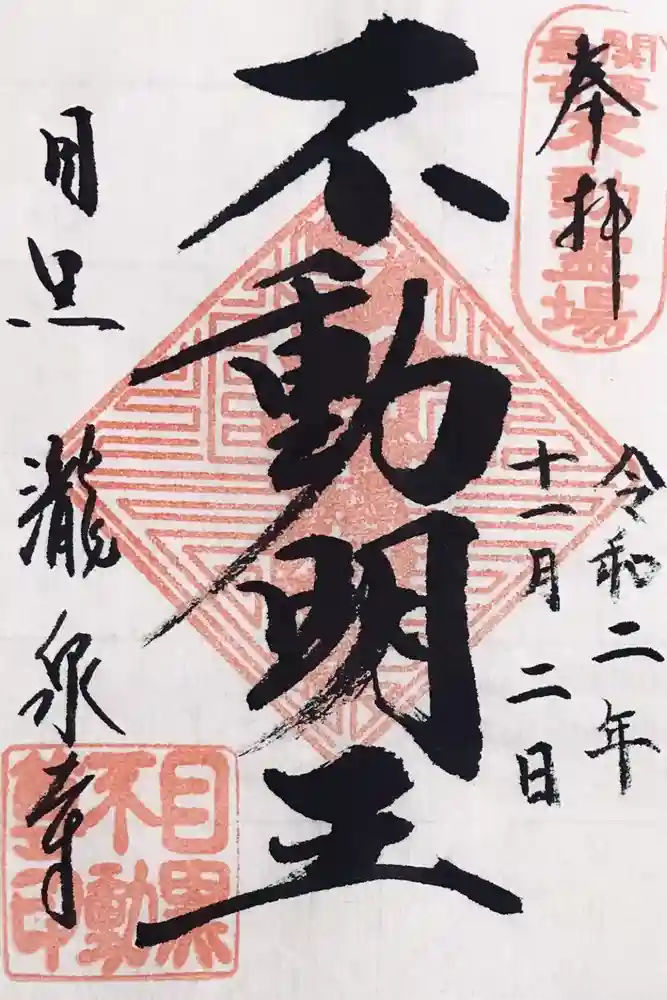 奉拝
関東
最古
不動霊場
令和二年
十一月二日
不動明王
目黒 瀧泉寺
目黒
不動